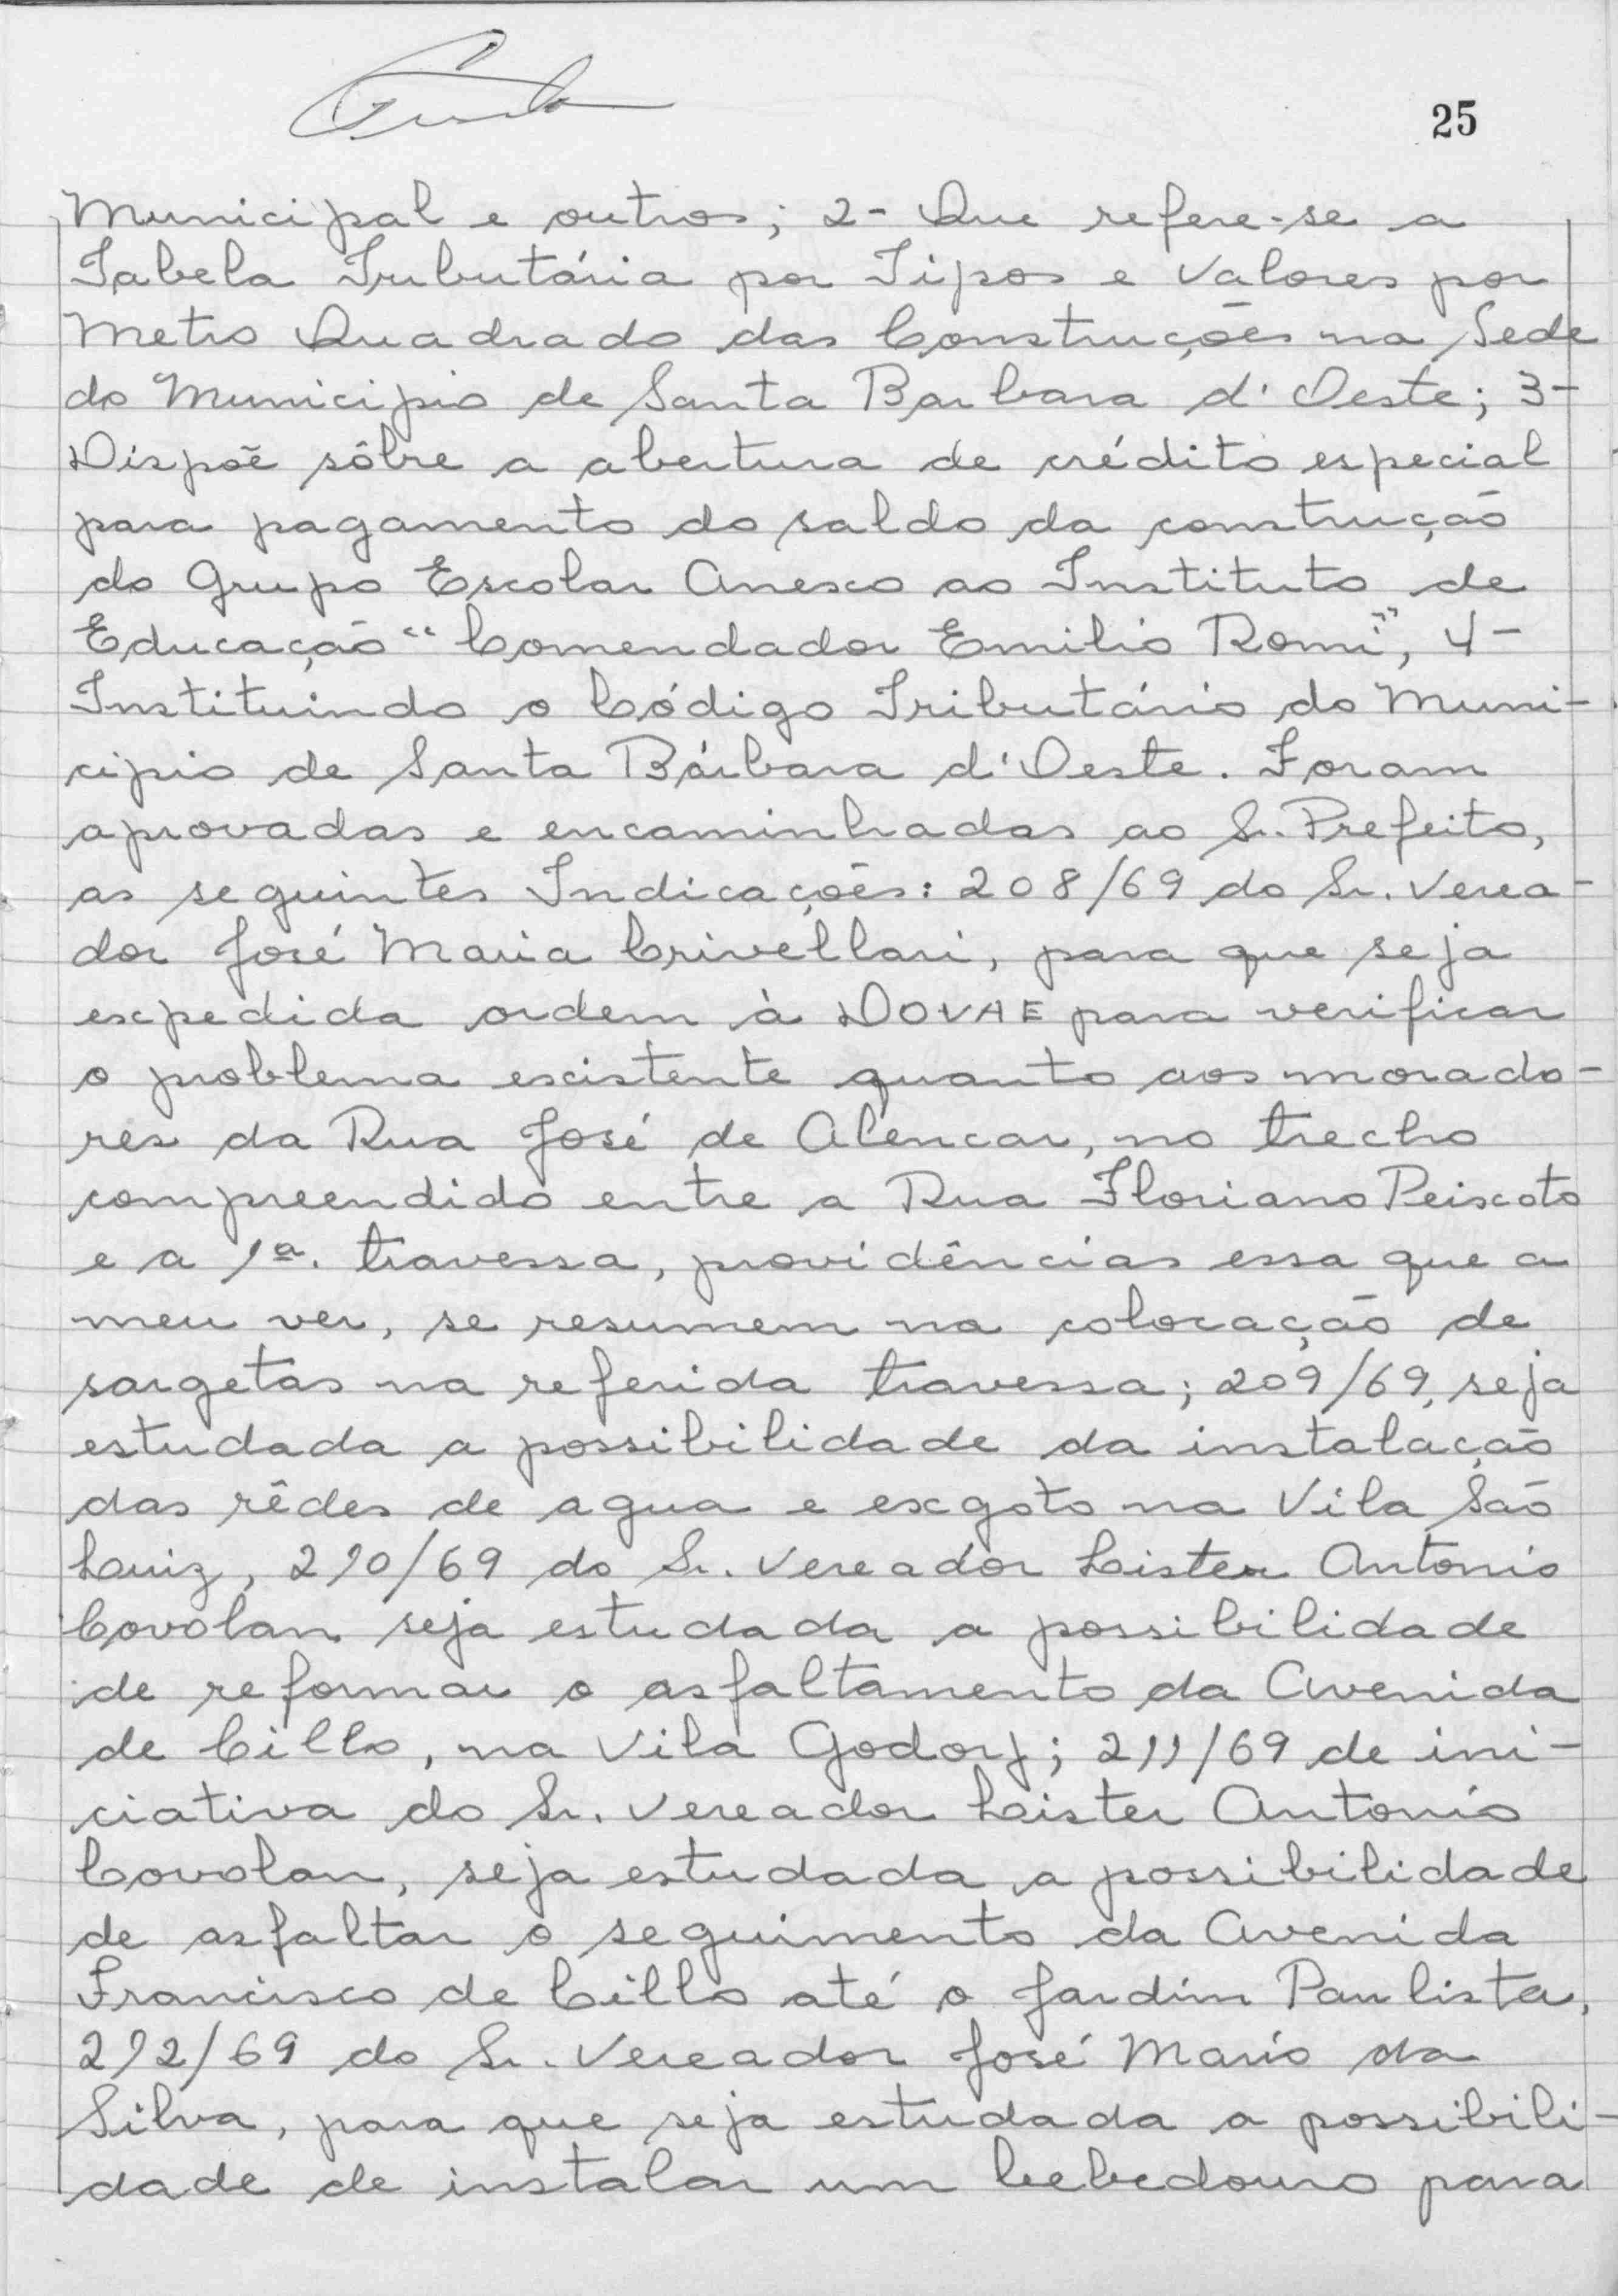 25
Municipal e outros; 2- Que refere-se a
Tabela Tributária por Tipos e Valores por
Metro Quadrado das Construções na Sede
do Municipio de Santa Barbara d'Oeste; 3-
Dispõe sôbre a abertura de crédito especial
para pagamento do saldo da construção
do Grupo Escolar Anexo ao Instituto de
Educação "Comendador Emilio Romi", 4-
Instituindo o Código Tributário do Muni-
cipio de Santa Bárbara d'Oeste. Foram
aprovadas e encaminhadas ao Sr. Prefeito,
as seguintes Indicações: 208/69 do Sr. Verea-
dor José Maria Crivellari, para que seja
expedida ordem à DOVAE para verificar
o problema existente quanto aos morado-
res da Rua José de Alencar, no trecho
compreendido entre a Rua Floriano Peixoto
e a 1ª. travessa, providências essa que a
meu ver, se resumem na colocação de
sargetas na referida travessa; 209/69, seja
estudada a possibilidade da instalação
das rêdes de agua e exgoto na Vila São
Luiz, 210/69 do Sr. Vereador Lister Antonio
Covolan seja estudada a possibilidade
de reformar o asfaltamento da Avenida
de Cillo, na Vila Godoy; 211/69 de ini-
ciativa do Sr. Vereador Lister Antonio
Covolan, seja estudada a possibilidade
de asfaltar o seguimento da Avenida
Francisco de Cillo até o Jardim Paulista,
212/69 do Sr. Vereador José Mario da
Silva, para que seja estudada a possibili-
dade de instalar um bebedouro para